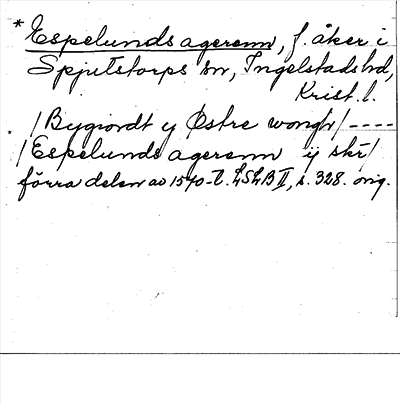 * Espelunds agerenn, f. åker i
Spjutstorps sn, Ingelstads hd,
Krist. l.
/Bygiordt y Østre wongh/ ----
/Espelunds agerenn ij skr/
förra delen av 1570-t. LSLB II, s. 328. orig.